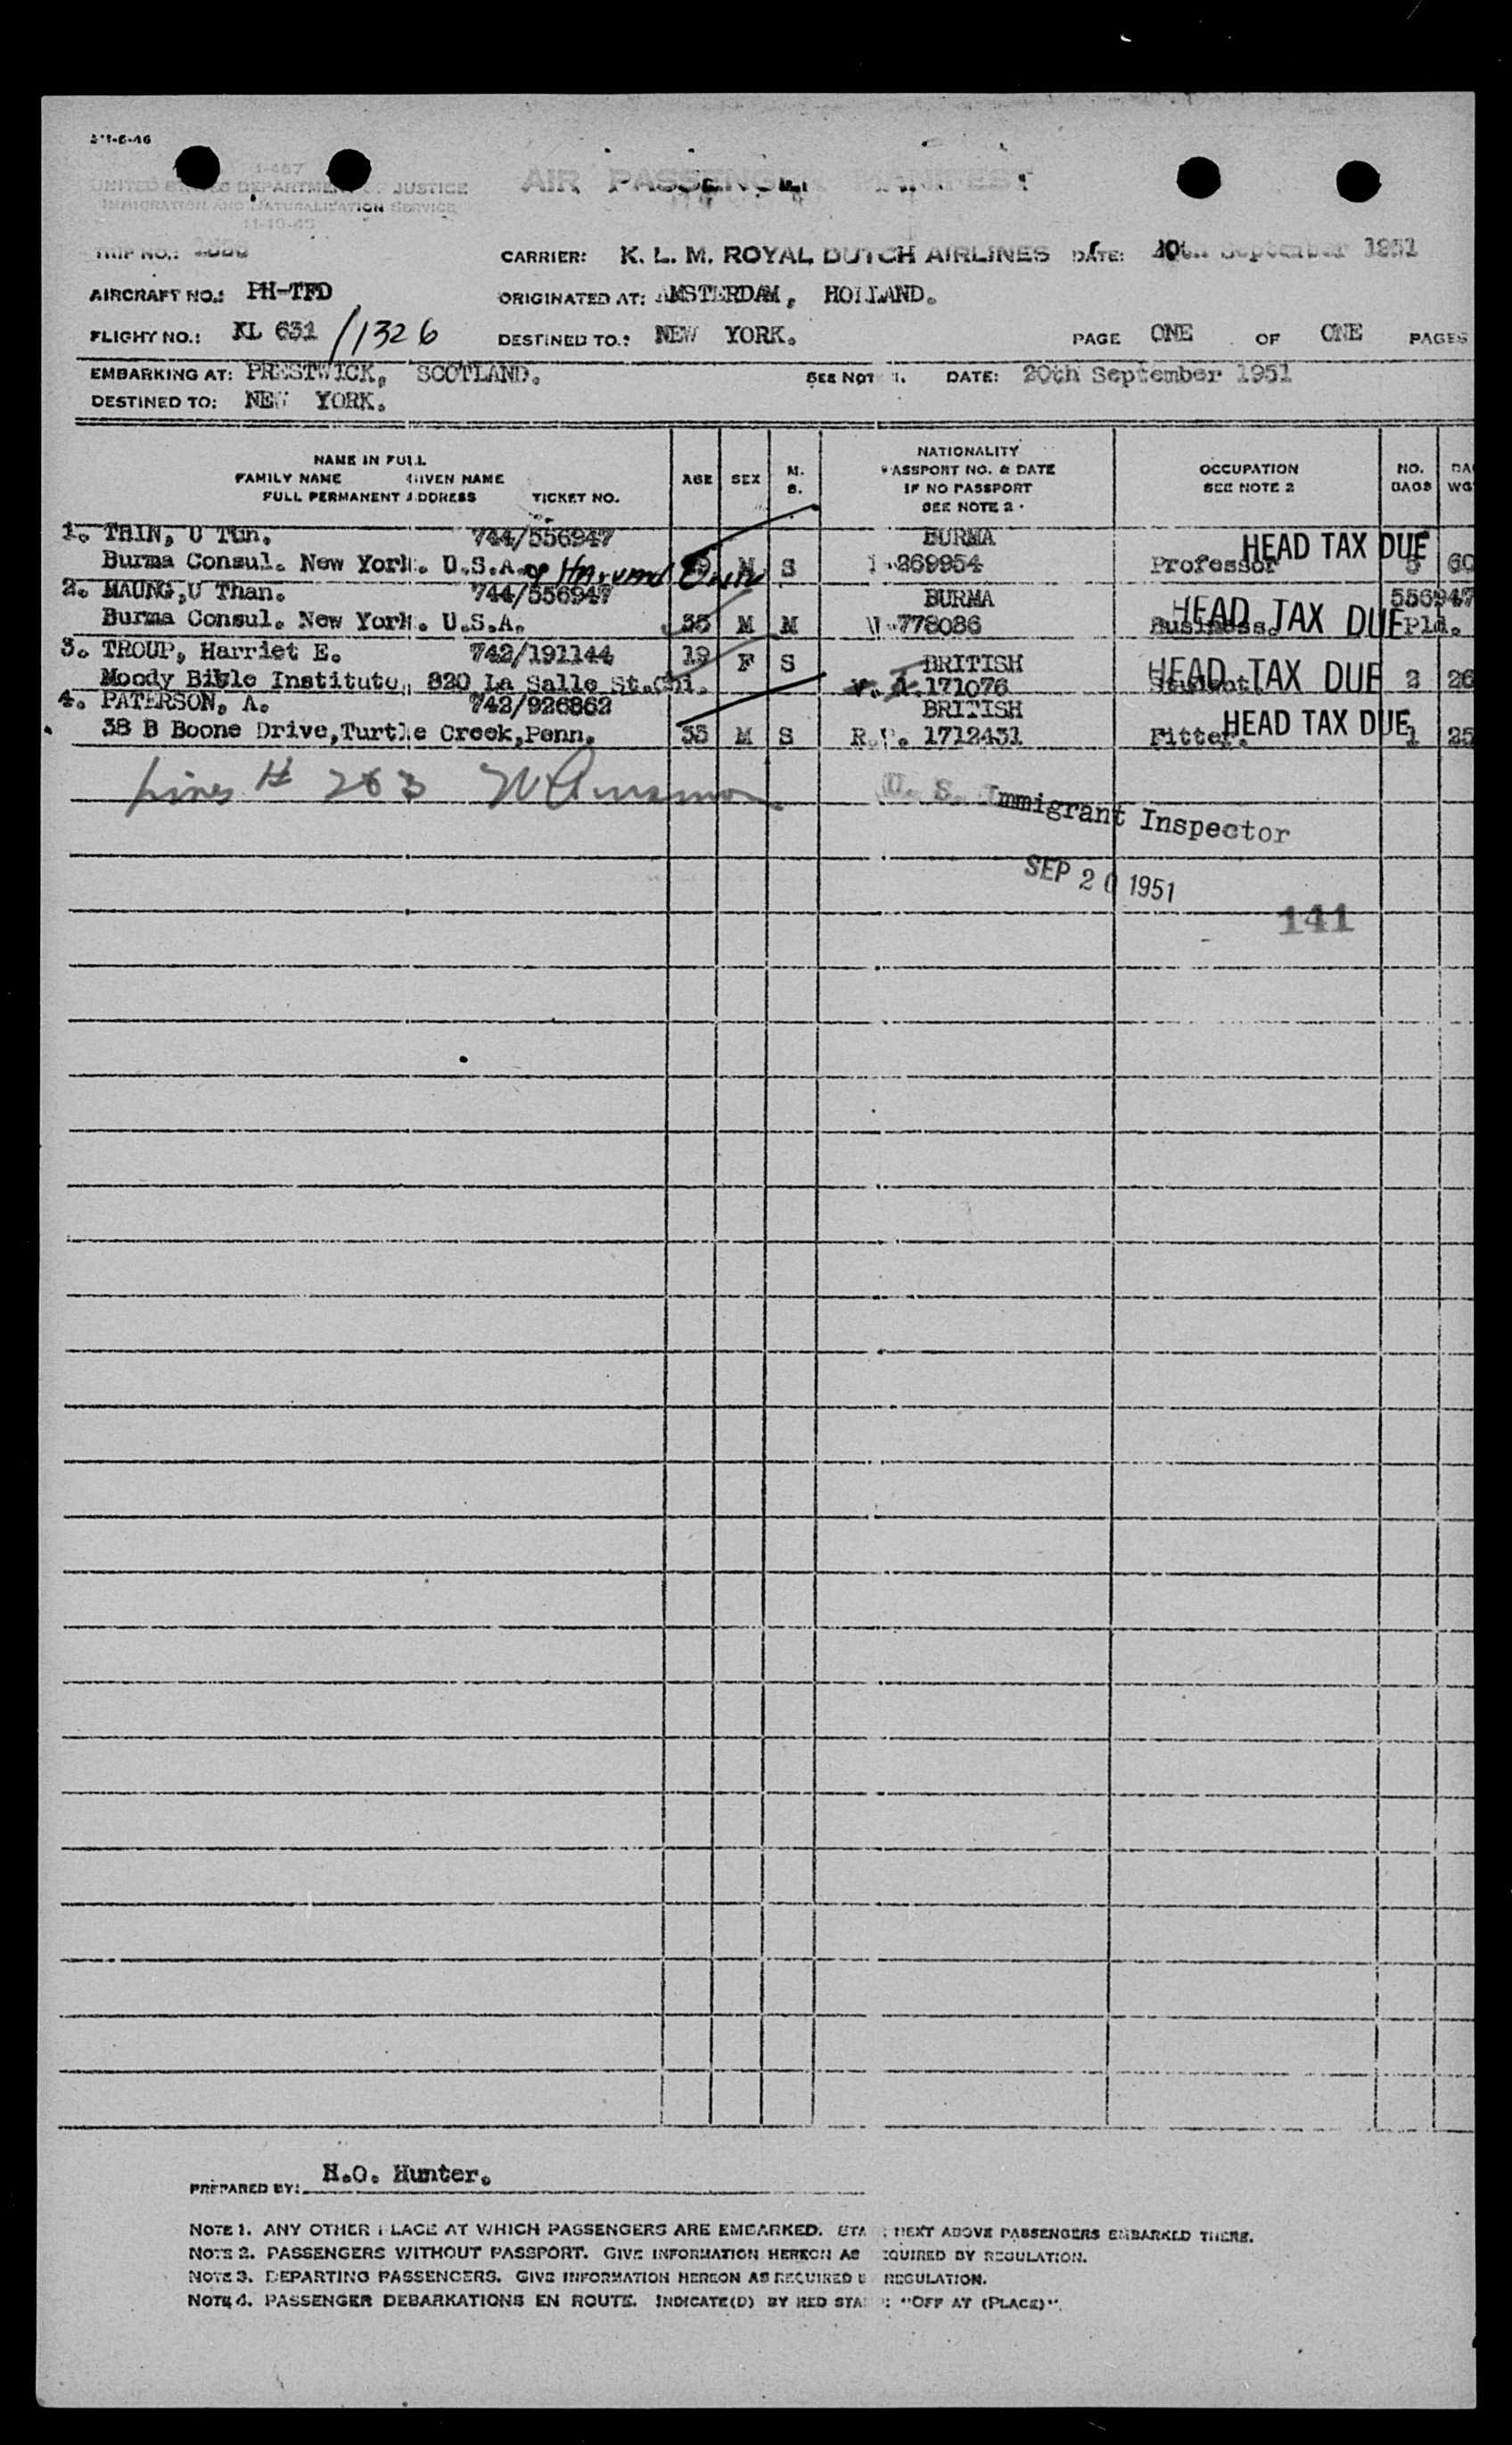 I-457
UNITED STATES DEPARTMENT OF JUSTICE
IMMIGRATION AND NATURALIZATION SERVICE
11-10-45
AIR PASSENGER MANIFEST
TRIP NO.:
CARRIER: K. L. M. ROYAL DUTCH AIRLINES DATE: 20th September 1951
AIRCRAFT NO.: PH-TFD
ORIGINATED AT: AMSTERDAM, HOLLAND.
FLIGHT NO.: KL 631 /1326
DESTINED TO.: NEW YORK.
PAGE ONE OF ONE PAGES
EMBARKING AT: PRESTWICK, SCOTLAND.
SEE NOTE 1. DATE: 20th September 1951
DESTINED TO: NEW YORK.
NAME IN FULL
FAMILY NAME GIVEN NAME
FULL PERMANENT ADDRESS TICKET NO.
AGE SEX M. S.
NATIONALITY
PASSPORT NO. & DATE
IF NO PASSPORT
SEE NOTE 2.
OCCUPATION
SEE NOTE 2
NO.
BAGS
1. THIN, U Tun. 744/556947 BURMA
Burma Consul. New York. U.S.A. Harvard M S 269954 Professor HEAD TAX DUE 60
2. MAUNG,U Than. 744/556947 BURMA 556947
Burma Consul. New York. U.S.A. 35 M M 778086 Business. HEAD TAX DUE Pld.
3. TROUP, Harriet E. 742/191144 19 F S BRITISH
Moody Bible Institute, 820 La Salle St.Chi. 171076 Student. HEAD TAX DUE 2 26
4. PATERSON, A. 742/926862 BRITISH
38 B Boone Drive,Turtle Creek,Penn. 35 M S R.P. 1712431 Fitter. HEAD TAX DUE 1 25
Lines # 2 & 3
U. S. Immigrant Inspector
SEP 20 1951
141
PREPARED BY: H.O. Hunter.
NOTE 1. ANY OTHER PLACE AT WHICH PASSENGERS ARE EMBARKED. STATE NEXT ABOVE PASSENGERS EMBARKED THERE.
NOTE 2. PASSENGERS WITHOUT PASSPORT. GIVE INFORMATION HEREON AS REQUIRED BY REGULATION.
NOTE 3. DEPARTING PASSENGERS. GIVE INFORMATION HEREON AS REQUIRED BY REGULATION.
NOTE 4. PASSENGER DEBARKATIONS EN ROUTE. INDICATE(D) BY RED STAMP: "OFF AT (PLACE)".